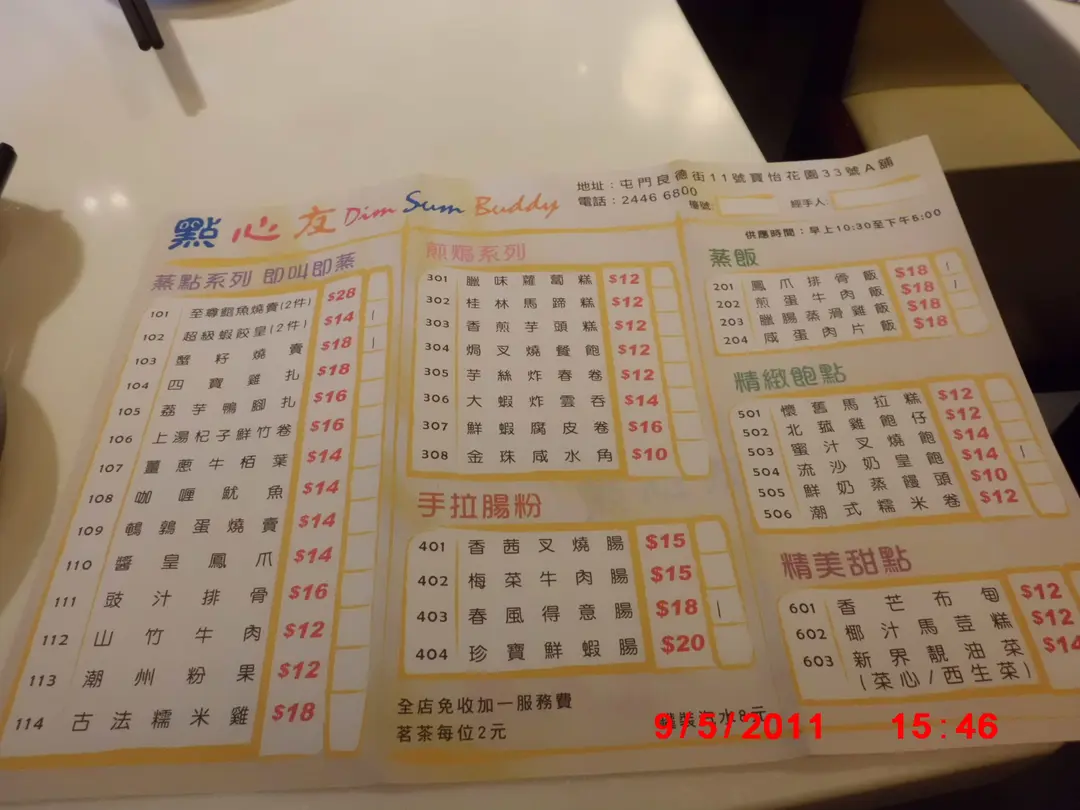 點心友 Dim Sum Buddy
地址：屯門良德街11號寶怡花園33號A舖
電話：2446 6800
檯號:
經手人:
供應時間：早上10:30至下午5:00
蒸點系列 即叫即蒸
101 至尊鮑魚燒賣(2件) $28
102 超級蝦餃皇(2件) $14
103 蟹籽燒賣 $18
104 四寶雞扎 $18
105 荔芋鴨腳扎 $16
106 上湯杞子鮮竹卷 $16
107 薑蔥牛栢葉 $14
108 咖喱魷魚 $14
109 鵪鶉蛋燒賣 $14
110 醬皇鳳爪 $14
111 豉汁排骨 $16
112 山竹牛肉 $12
113 潮州粉果 $12
114 古法糯米雞 $18
煎焗系列
301 臘味蘿蔔糕 $12
302 桂林馬蹄糕 $12
303 香煎芋頭糕 $12
304 焗叉燒餐飽 $12
305 芋絲炸春卷 $12
306 大蝦炸雲吞 $14
307 鮮蝦腐皮卷 $16
308 金珠咸水角 $10
手拉腸粉
401 香茜叉燒腸 $15
402 梅菜牛肉腸 $15
403 春風得意腸 $18
404 珍寶鮮蝦腸 $20
全店免收加一服務費
茗茶每位2元
蒸飯
201 鳳爪排骨飯 $18
202 煎蛋牛肉飯 $18
203 臘腸蒸滑雞飯 $18
204 咸蛋肉片飯 $18
精緻飽點
501 懷舊馬拉糕 $12
502 北菰雞飽仔 $12
503 蜜汁叉燒飽 $14
504 流沙奶皇飽 $14
505 鮮奶蒸饅頭 $10
506 潮式糯米卷 $12
精美甜點
601 香芒布甸 $12
602 椰汁馬荳糕 $12
603 新界靚油菜 $14
(菜心/西生菜)
9/5/2011 15:46